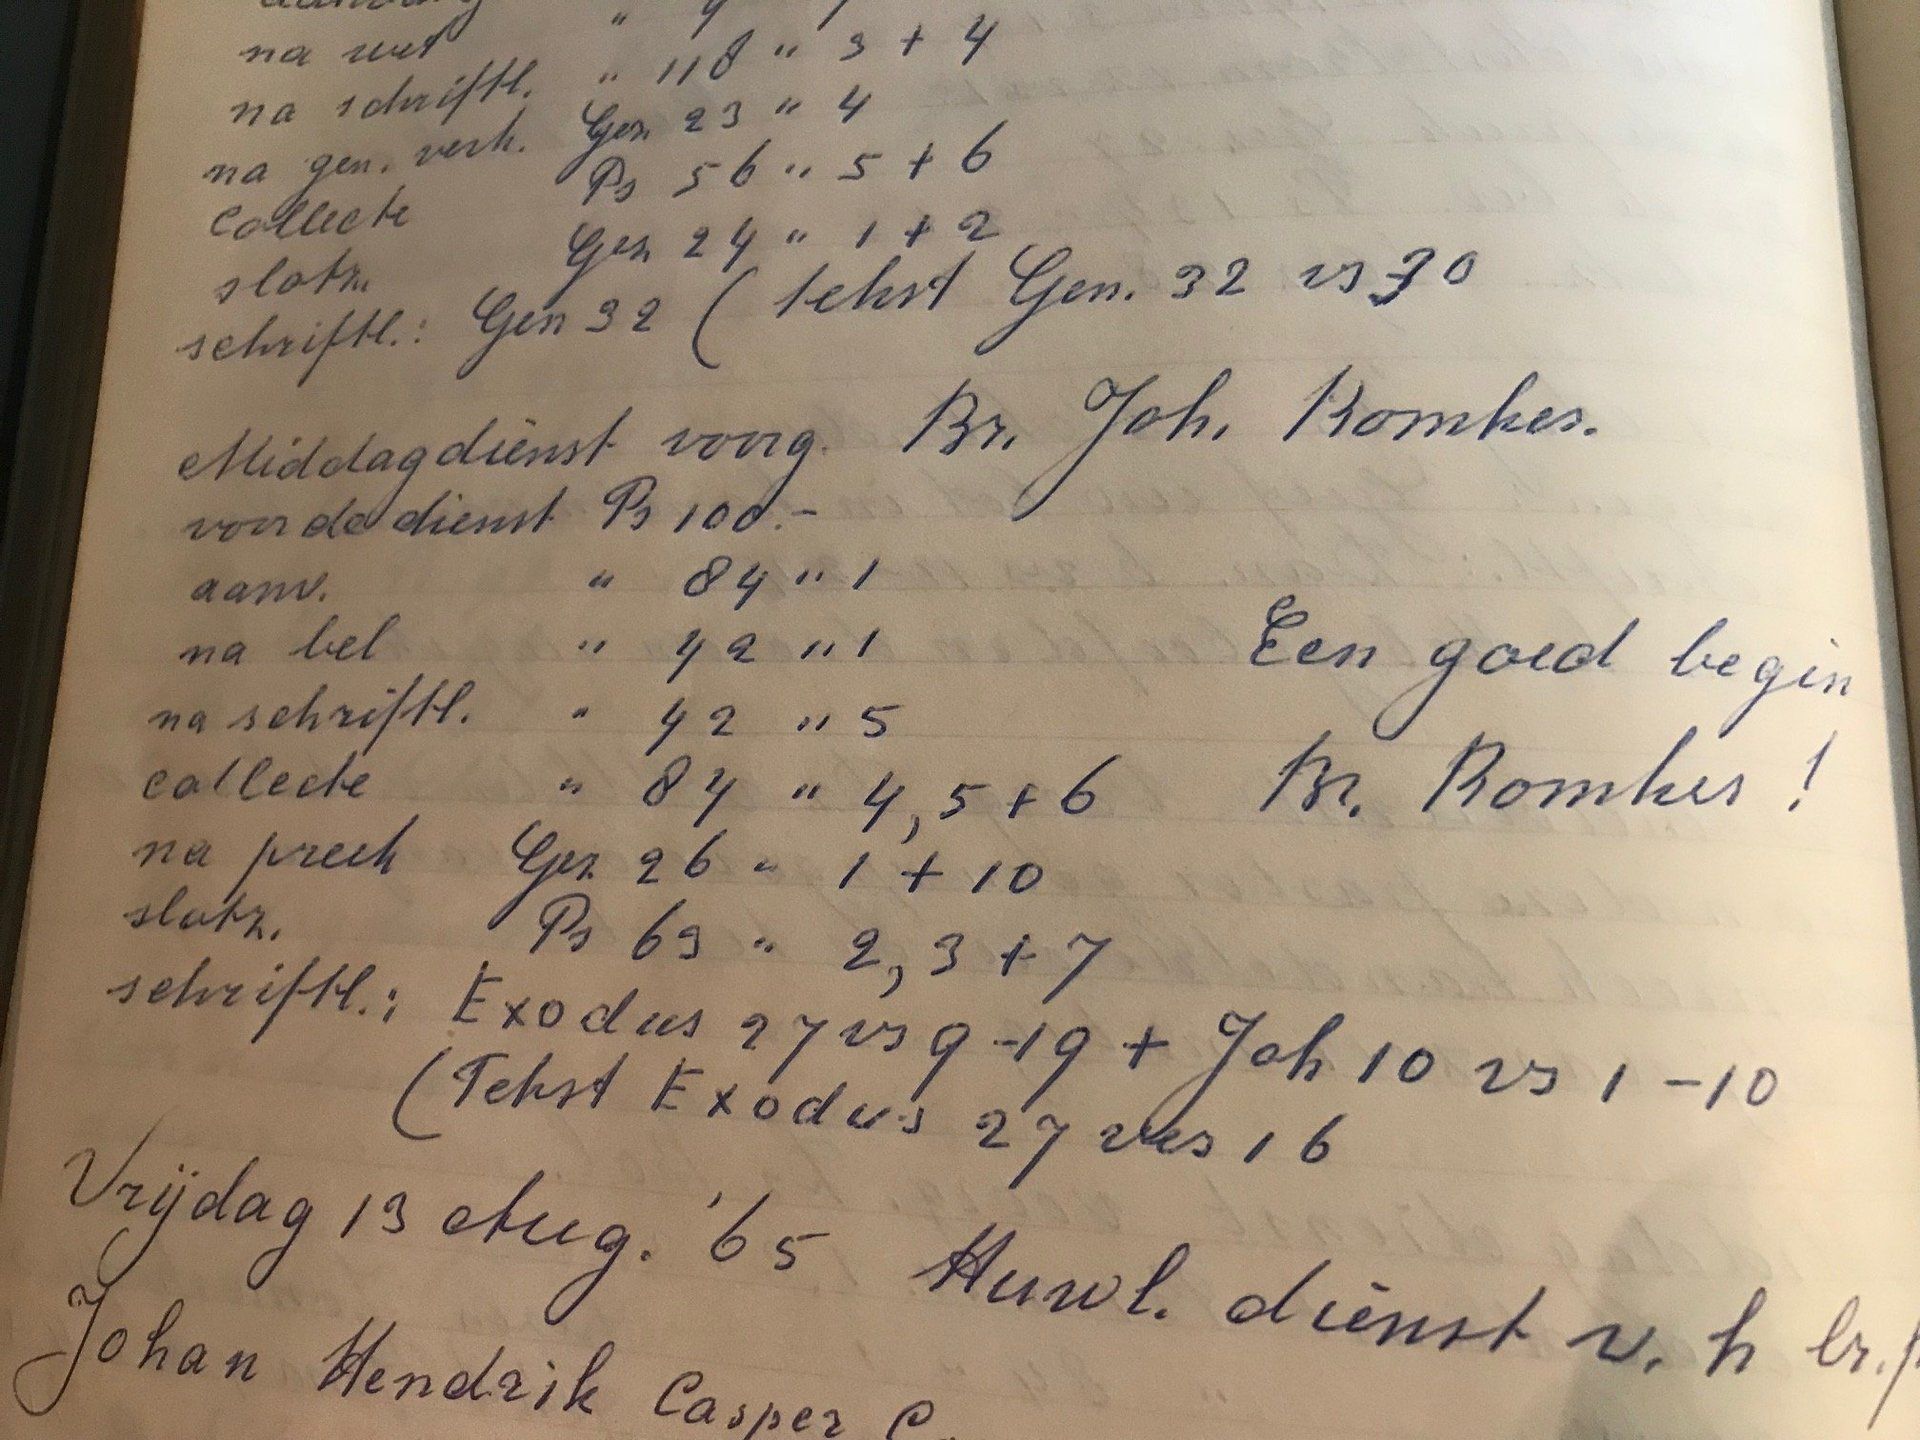 na wet " 118 " 3 + 4
na schriftl. Gez 23 " 4
na gen. verk. Ps 56 " 5 + 6
collecte Gez 24 " 1 + 2
slotz.
schriftl.: Gen 32 ( tekst Gen. 32 vs 30
Middagdienst voorg. Br. Joh. Romkes.
voor de dienst Ps 100.-
aanv. " 84 " 1
na bel " 42 " 1
Een goed begin
na schriftl. " 42 " 5
collecte " 84 " 4, 5 + 6
Br. Romkes!
na preek Gez 26 " 1 + 10
slotz. Ps 69 " 2, 3 + 7
schriftl.: Exodus 27 vs 9-19 + Joh 10 vs 1-10
(Tekst Exodus 27 vers 16
Vrijdag 13 Aug. '65 Huwl. dienst v. h br.
Johan Hendrik Casper C.